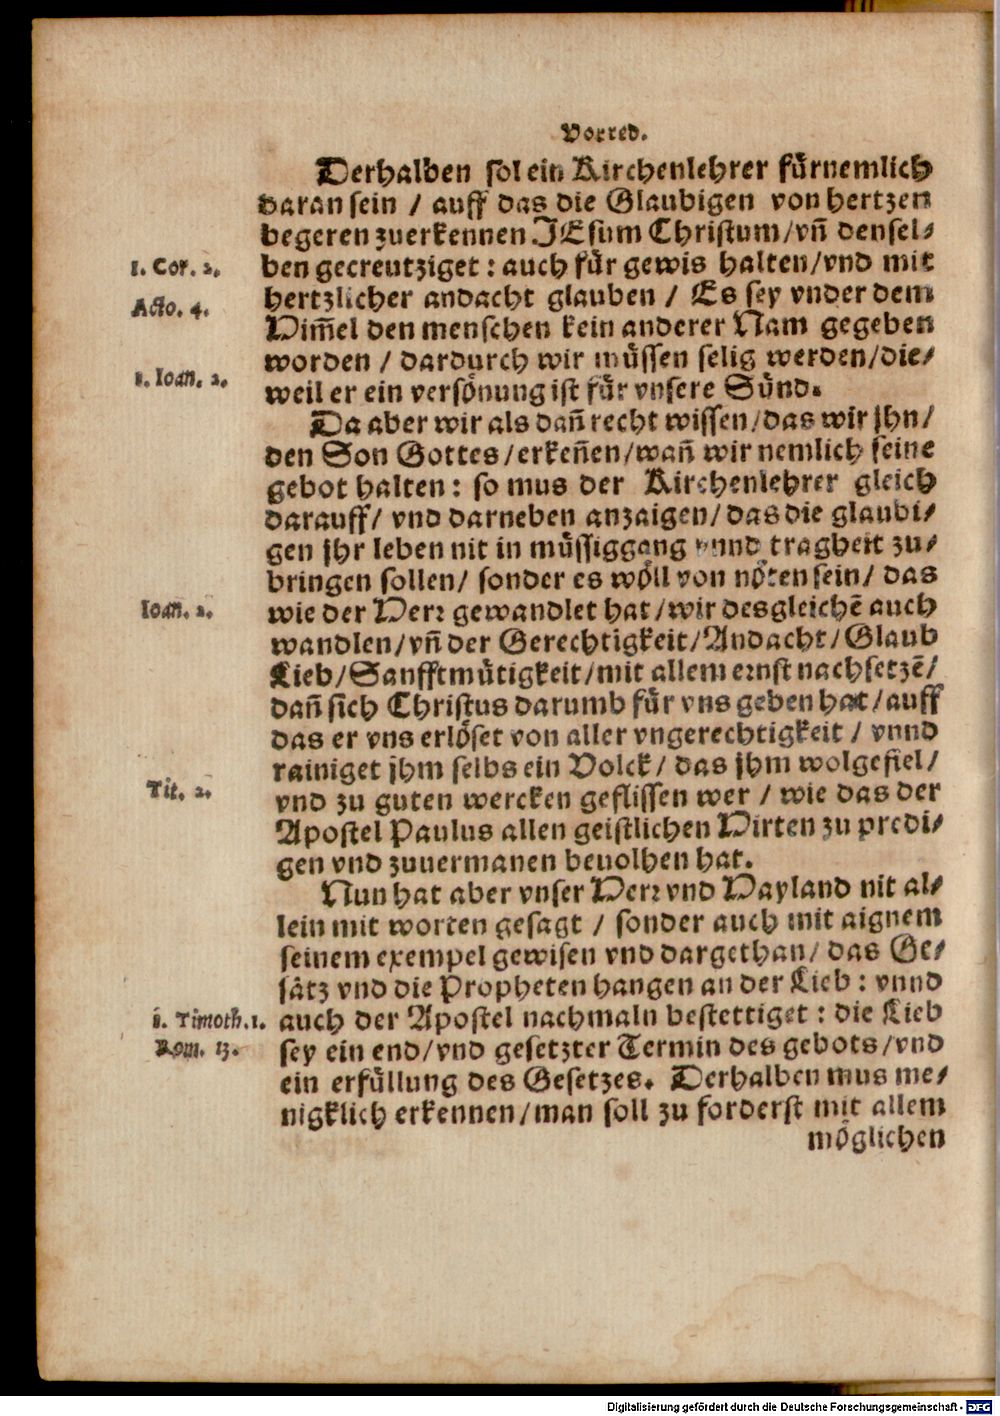 Vorred.
Derhalben sol ein Kirchenlehrer fürnemlich
daran sein / auff das die Glaubigen von hertzen
begeren zuerkennen JEsum Christum/vñ densel⸗
1. Cor. 2.
ben gecreutziget: auch für gewis halten/vnd mit
Acto. 4.
hertzlicher andacht glauben / Es sey vnder dem
Him̃el den menschen kein anderer Nam gegeben
worden / dardurch wir müssen selig werden/die⸗
1. Ioan. 2.
weil er ein versönung ist für vnsere Sünd.
Da aber wir als dañ recht wissen/das wir jhn/
den Son Gottes/erkeñen/wañ wir nemlich seine
gebot halten: so mus der Kirchenlehrer gleich
darauff/ vnd darneben anzaigen/das die glaubi⸗
gen jhr leben nit in müssiggang vnnd tragheit zu⸗
bringen sollen/ sonder es wöll von nöten sein/ das
Ioan. 2.
wie der Herr gewandlet hat/wir desgleichẽ auch
wandlen/vñ der Gerechtigkeit/Andacht/Glaub
Lieb/Sanfftmütigkeit/mit allem ernst nachsetzẽ/
dañ sich Christus darumb für vns geben hat/auff
das er vns erlöset von aller vngerechtigkeit / vnnd
rainiget jhm selbs ein Volck/ das jhm wolgefiel/
Tit. 2.
vnd zu guten wercken geflissen wer / wie das der
Apostel Paulus allen geistlichen Hirten zu predi⸗
gen vnd zuuermanen beuolhen hat.
Nun hat aber vnser Herr vnd Hayland nit al⸗
lein mit worten gesagt / sonder auch mit aignem
seinem exempel gewisen vnd dargethan/ das Ge⸗
sätz vnd die Propheten hangen an der Lieb: vnnd
1. Timoth. 1.
auch der Apostel nachmaln bestettiget: die Lieb
Rom. 13.
sey ein end/vnd gesetzter Termin des gebots/vnd
ein erfüllung des Gesetzes. Derhalben mus me⸗
nigklich erkennen/man soll zu forderst mit allem
möglichen
Digitalisierung gefördert durch die Deutsche Forschungsgemeinschaft - DFG